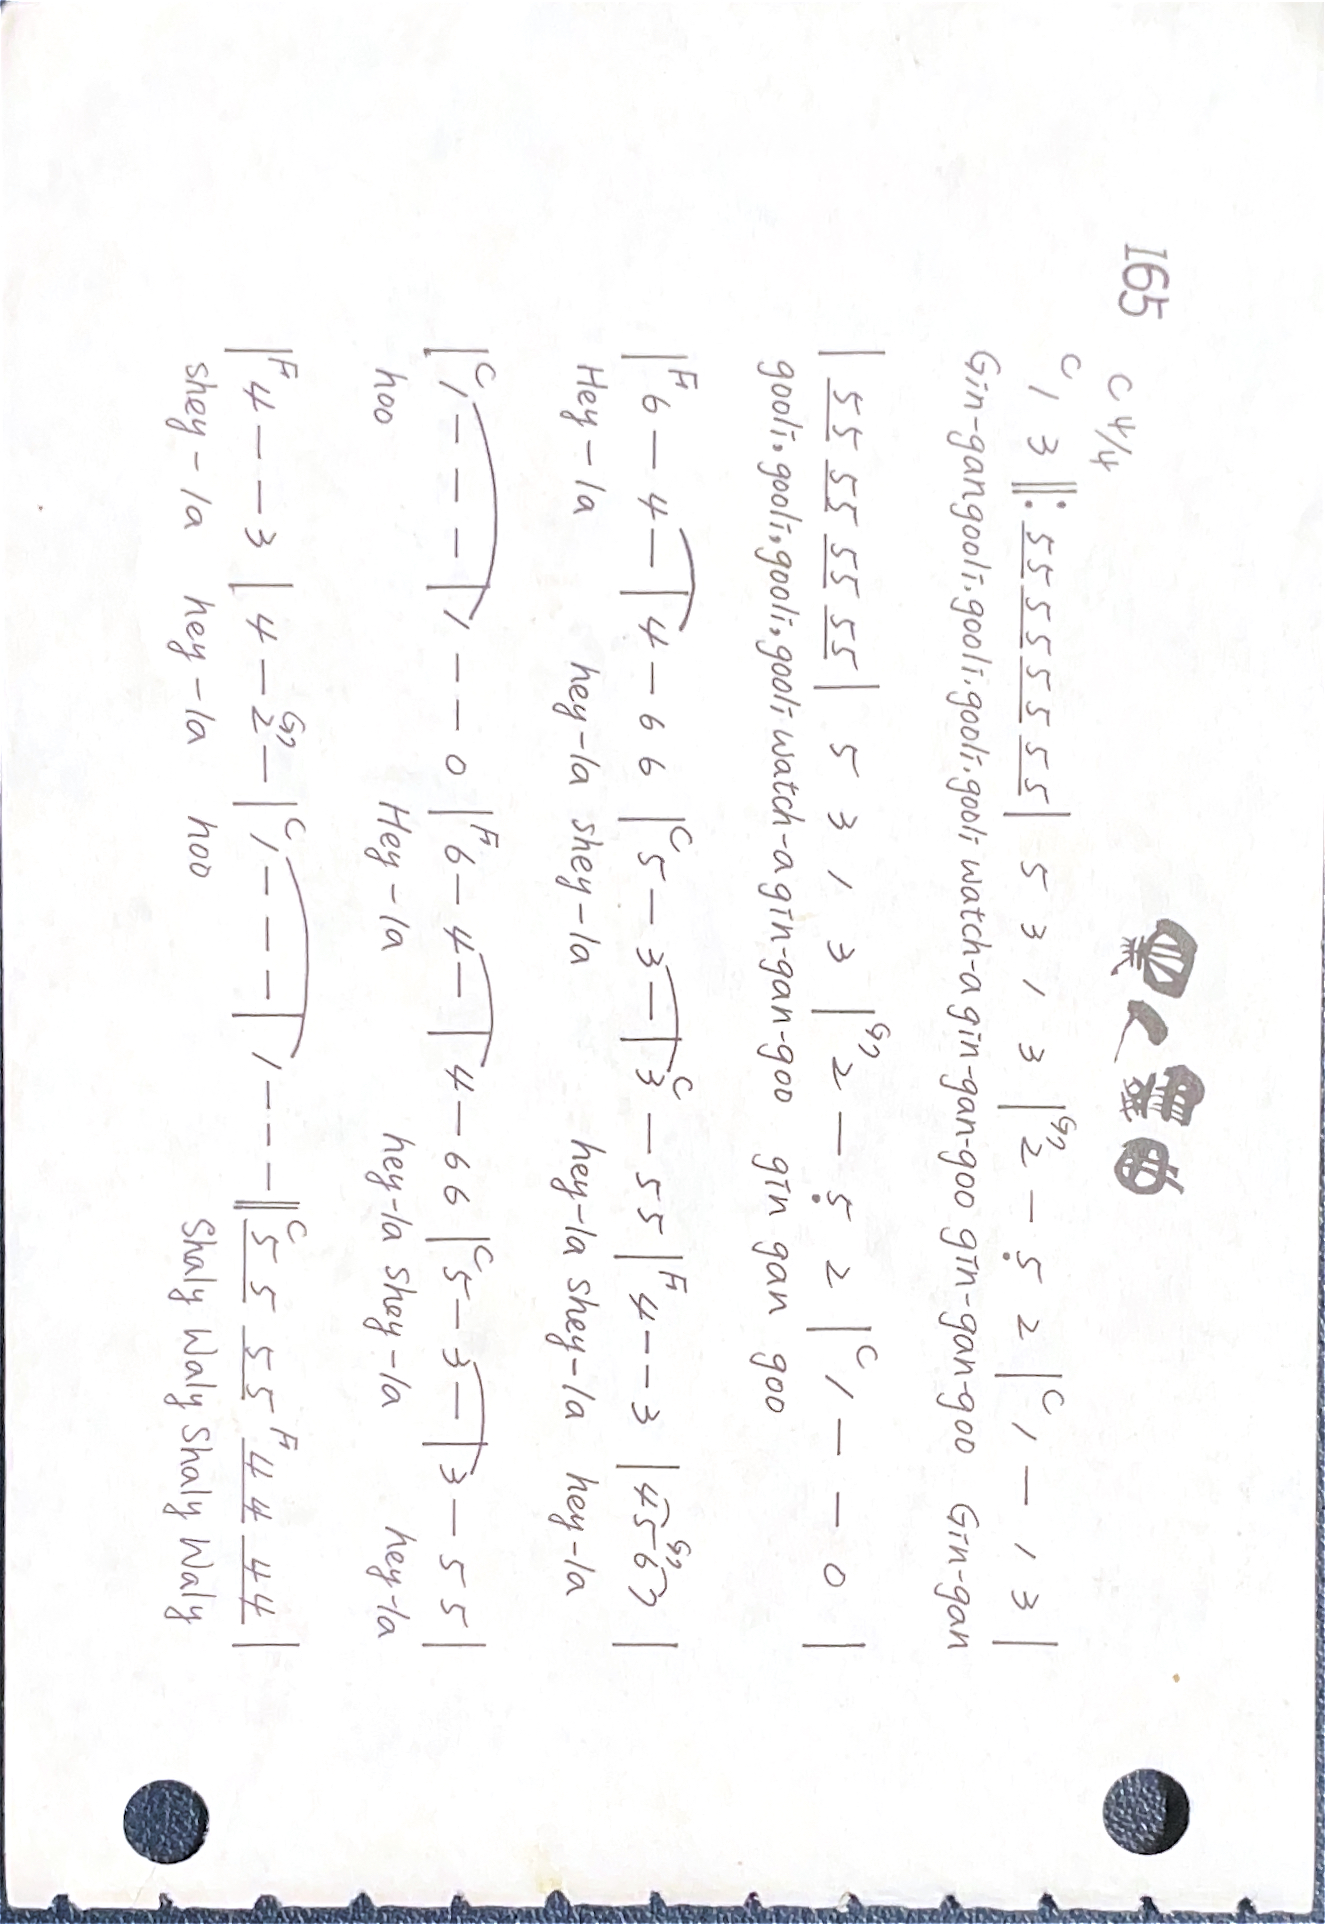 165
黑人舞曲
C 4/4
C 1 3 ‖: 55 55 55 55 | 5 3 1 3 | G7 2 — 5̣ 2 | C 1 — 1 3 |
Gin-gangooli, gooli, gooli, gooli watch-a gin-gan-goo gin-gan-goo Gin-gan
| 55 55 55 55 | 5 3 1 3 | G7 2 — 5̣ 2 | C 1 — — 0 |
gooli, gooli, gooli, gooli watch-a gin-gan-goo gin gan goo
| F 6 — 4 — | 4 — 6 6 | C 5 — 3 — | C 3 — 5 5 | F 4 — — 3 | 4 5 G7 6 7 |
Hey-la hey-la shey-la hey-la shey-la hey-la
| C 1 — — — | 1 — — 0 | F 6 — 4 — | 4 — 6 6 | C 5 — 3 — | 3 — 5 5 |
hoo Hey-la hey-la shey-la hey-la
| F 4 — — 3 | 4 — G7 2 — | C 1 — — — | 1 — — — ‖ C 5 5 5 5 F 4 4 4 4 |
shey-la hey-la hoo Shaly Waly Shaly Waly